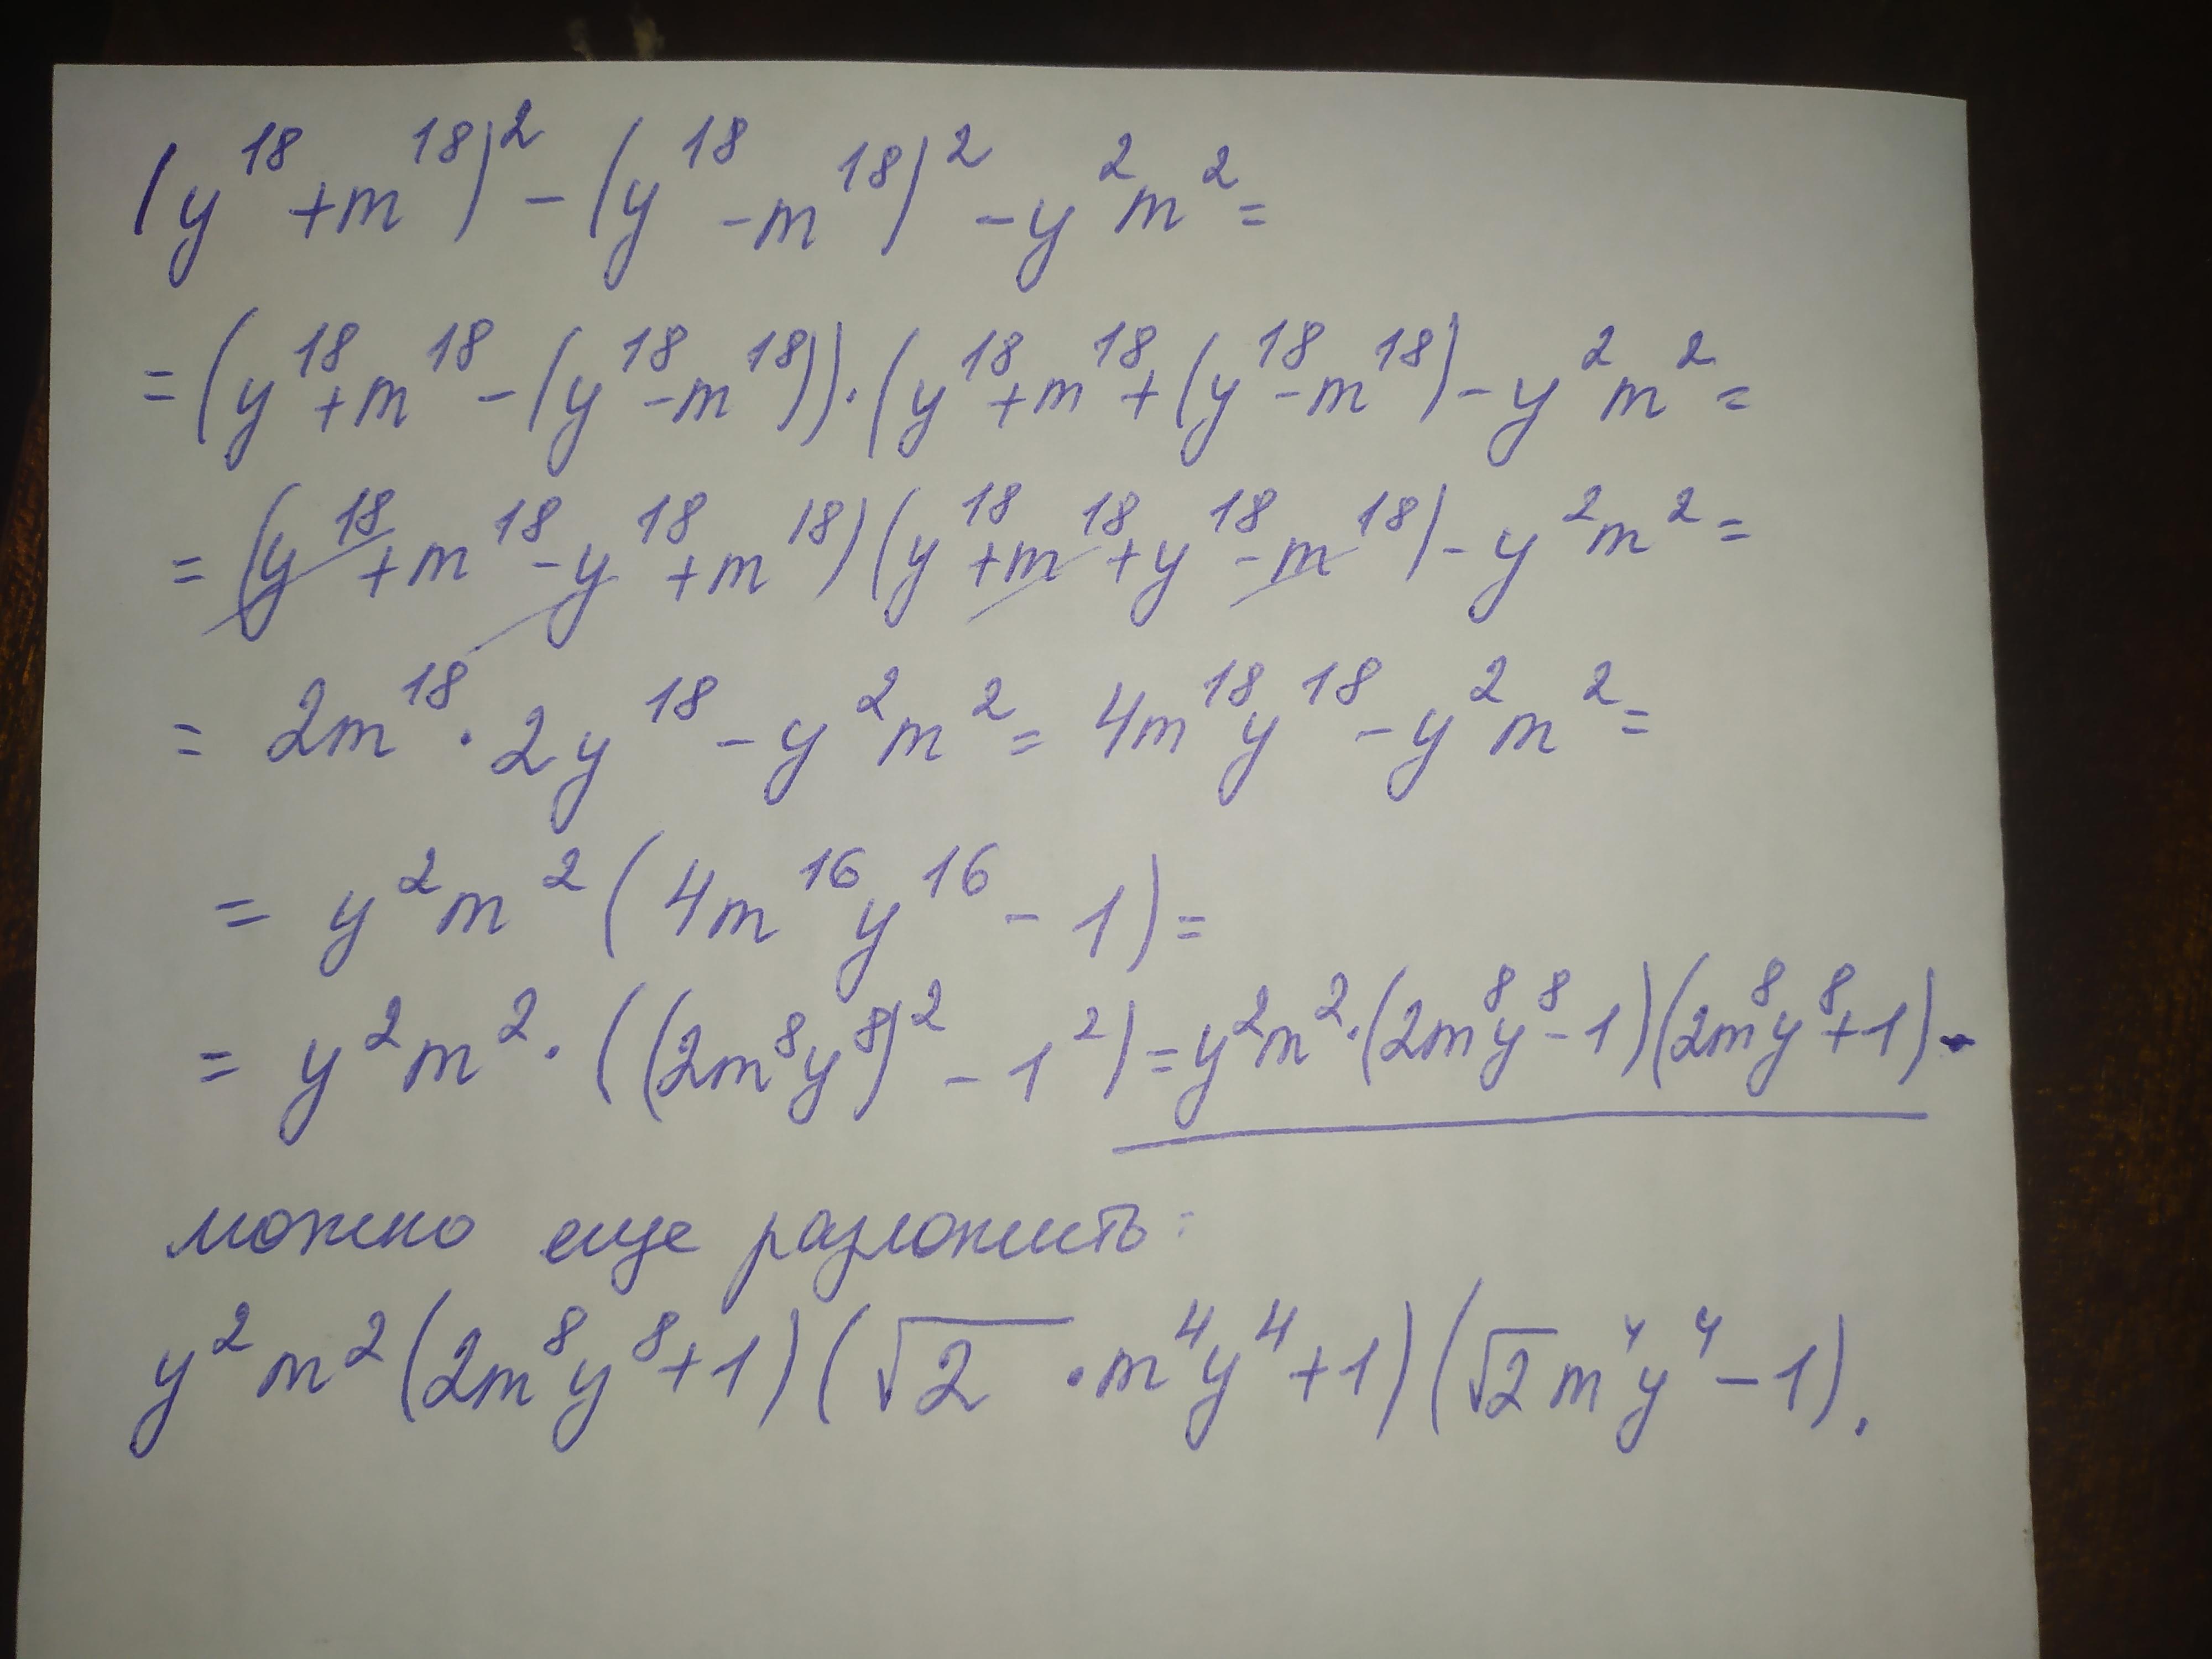 (y¹⁸+m¹⁸)²-(y¹⁸-m¹⁸)²-y²m²=
=(y¹⁸+m¹⁸-(y¹⁸-m¹⁸))·(y¹⁸+m¹⁸+(y¹⁸-m¹⁸)-y²m²=
=(y¹⁸+m¹⁸-y¹⁸+m¹⁸)(y¹⁸+m¹⁸+y¹⁸-m¹⁸)-y²m²=
=2m¹⁸·2y¹⁸-y²m²=4m¹⁸y¹⁸-y²m²=
=y²m²(4m¹⁶y¹⁶-1)=
=y²m²·((2m⁸y⁸)²-1²)=y²m²·(2m⁸y⁸-1)(2m⁸y⁸+1).
можно еще разложить:
y²m²(2m⁸y⁸+1)(√2·m⁴y⁴+1)(√2m⁴y⁴-1).